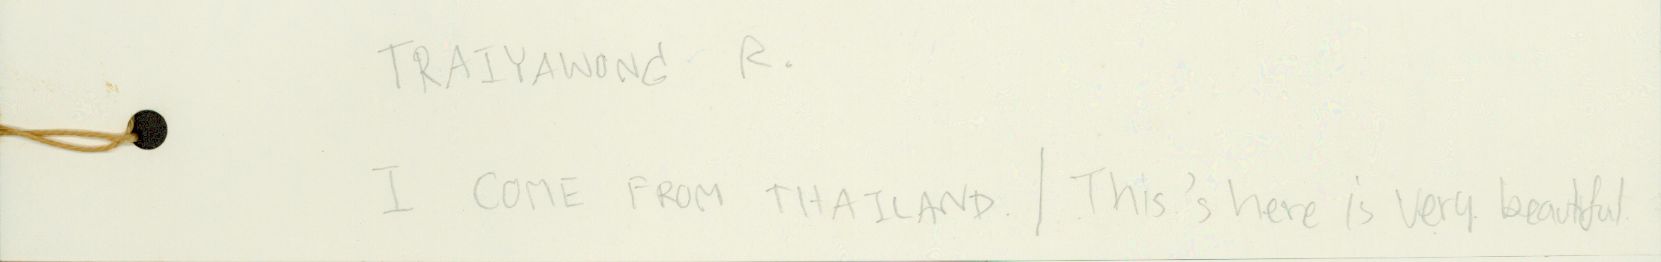 TRAIYAWONG R.
I COME FROM THAILAND. / This's here is very beautiful.